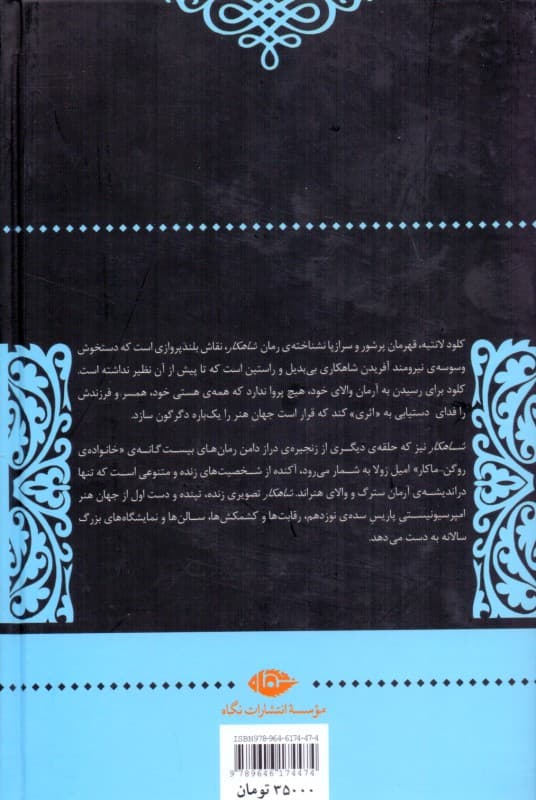 کلود لانتیه، قهرمان پرشور و سرازپا نشناخته‌ی رمان شاهکار، نقاش بلندپروازی است که دستخوش
وسوسه‌ی نیرومند آفریدن شاهکاری بی‌بدیل و راستین است که تا پیش از آن نظیر نداشته است.
کلود برای رسیدن به آرمان والای خود، هیچ پروا ندارد که همه‌ی هستی خود، همسر و فرزندش
را فدای دستیابی به «اثری» کند که قرار است جهان هنر را یک‌باره دگرگون سازد.
شاهکار نیز که حلقه‌ی دیگری از زنجیره‌ی دراز دامن رمان‌های بیست گانه‌ی «خانواده‌ی
روگن-ماکار» امیل زولا به شمار می‌رود، آکنده از شخصیت‌های زنده و متنوعی است که تنها
دراندیشه‌ی آرمان سترگ و والای هنراند. شاهکار تصویری زنده، تپنده و دست اول از جهان هنر
امپرسیونیستی پاریس سده‌ی نوزدهم، رقابت‌ها و کشمکش‌ها، سالن‌ها و نمایشگاه‌های بزرگ
سالانه به دست می‌دهد.
مؤسسهٔ انتشارات نگاه
ISBN978-964-6174-47-4
9 789646 174474
۳۵۰۰۰ تومان